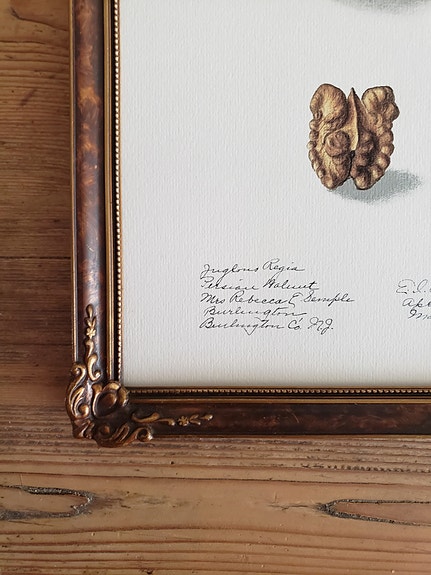 Juglans Regia
Persian Walnut
Mrs Rebecca E Semple
Burlington
Burlington Co. N.J.